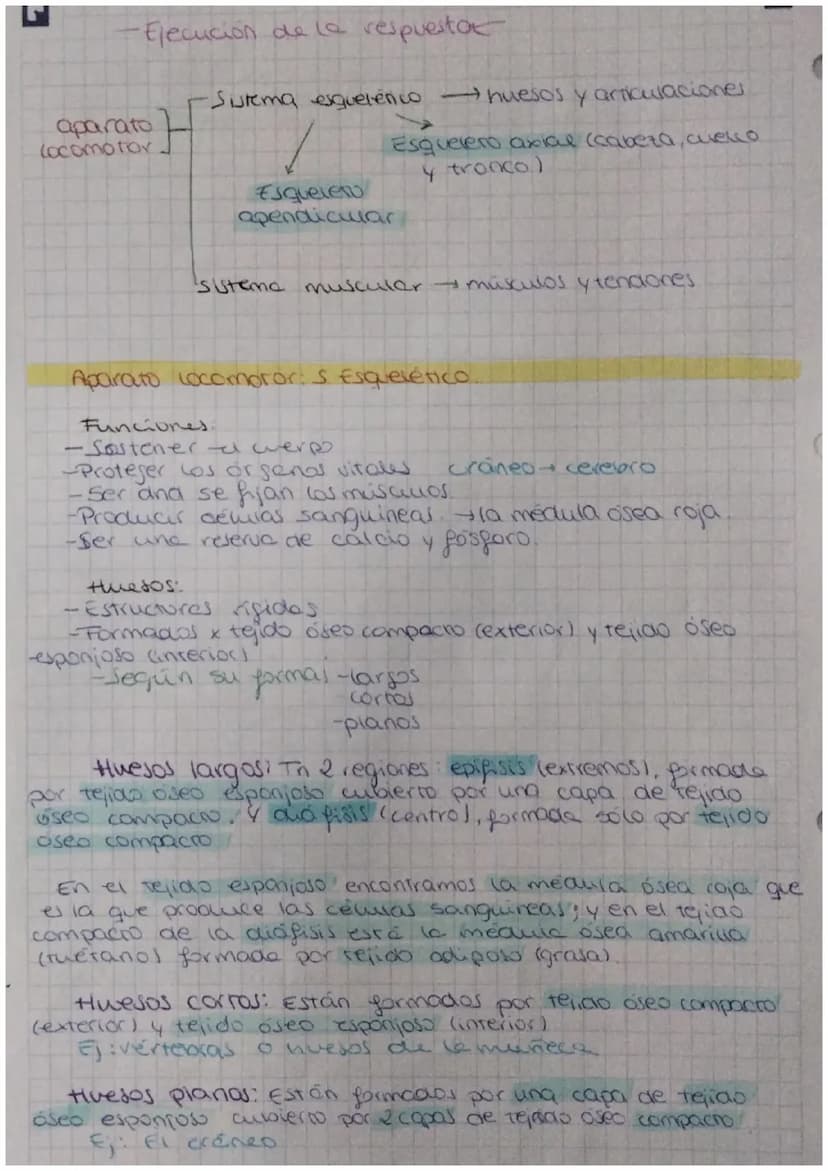 - Ejecución de la respuesta
aparato
locomotor
Sistema esquelético → huesos y articulaciones
Esqueleto axial (cabeza, cuello
y tronco)
Esqueleto
apendicular
Sistema muscular → músculos y tendones
Aparato locomotor: S Esquelético.
Funciones:
- Sostener el cuerpo
- Proteger los órganos vitales cráneo → cerebro
- Ser dnd se fijan los músculos.
- Producir células sanguíneas. → la médula ósea roja.
- Ser una reserva de calcio y fósforo.
Huesos:
- Estructuras rígidas
- Formados x tejido óseo compacto (exterior) y tejido óseo
esponjoso (interior)
- Según su forma: - largos
cortos
- planos
Huesos largos: Tn 2 regiones: epífisis (extremos), formada
por tejido óseo esponjoso cubierto por una capa de tejido
óseo compacto. Y diáfisis (centro), formada sólo por tejido
óseo compacto
En el tejido esponjoso encontramos la médula ósea roja que
es la que produce las células sanguíneas; y en el tejido
compacto de la diáfisis está la médula ósea amarilla
(tuétano) formada por tejido adiposo (grasa).
Huesos cortos: Están formados por tejido óseo compacto
(exterior) y tejido óseo esponjoso (interior)
Ej: vértebras o huesos de la muñeca
Huesos planos: Están formados por una capa de tejido
óseo esponjoso cubierto por 2 capas de tejido óseo compacto
Ej: El cráneo